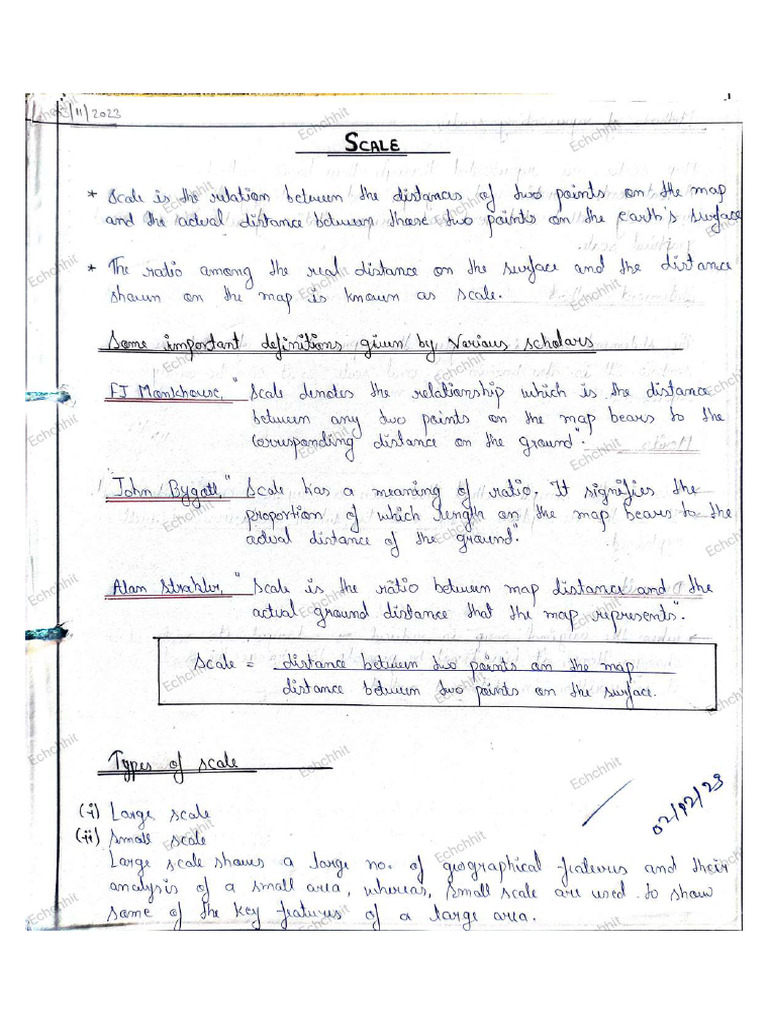 /11/2023
SCALE
* Scale is the relation between the distances of two points on the map
and the actual distance between those two points on the earth's surface
* The ratio among the real distance on the surface and the distance
shown on the map is known as scale.
Some important definitions given by various scholars
FJ Monkhouse, "Scale denotes the relationship which is the distance
between any two points on the map bears to the
corresponding distance on the ground".
John Bygott, "Scale has a meaning of ratio. It signifies the
proportion of which length on the map bears to the
actual distance of the ground".
Alan Strahler, "Scale is the ratio between map distance and the
actual ground distance that the map represents".
Scale = distance between two points on the map
distance between two points on the surface.
Types of scale
(i) Large scale
(ii) Small scale
02/12/23
Large scale shows a large no. of geographical features and their
analysis of a small area, whereas, small scale are used to show
some of the key features of a large area.
Echchhit